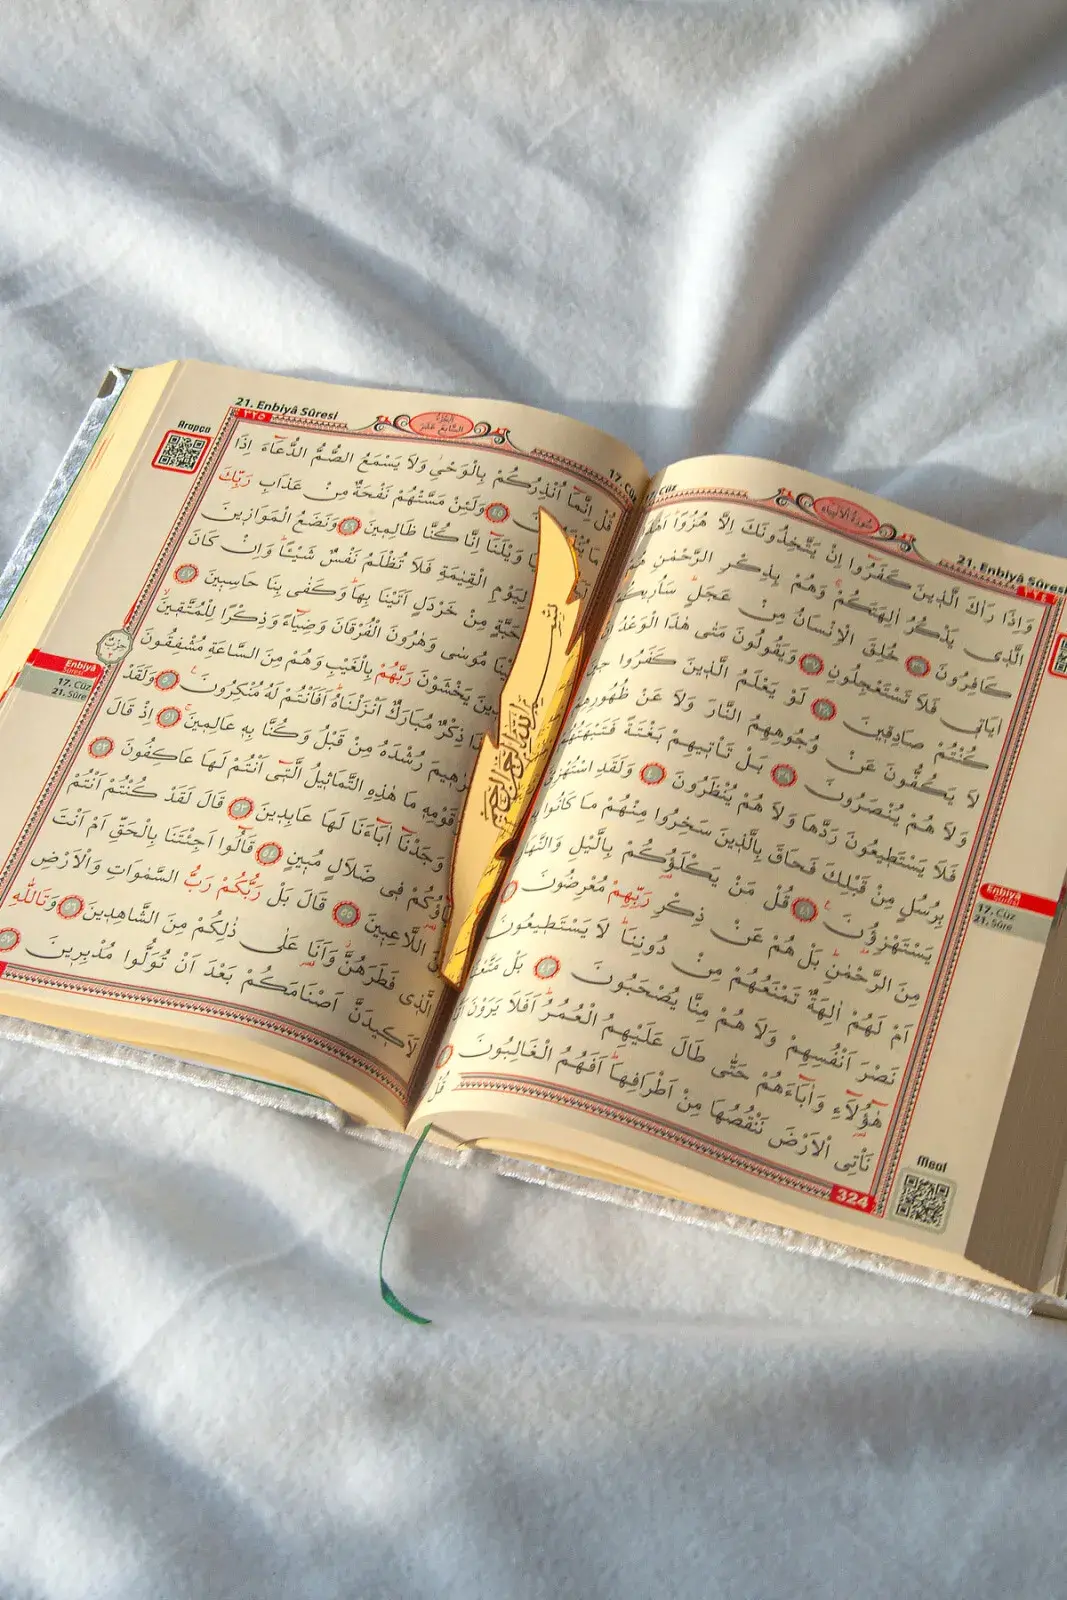 21. Enbiyâ Sûresi
٣٢٤
سُورَةُ الْاَنْبِيَاءِ
17. Cüz
وَاِذَا رَاٰكَ الَّذٖينَ كَفَرُٓوا اِنْ يَتَّخِذُونَكَ اِلَّا هُزُوًا
الَّذٖى يَذْكُرُ اٰلِهَتَكُمْ وَهُمْ بِذِكْرِ الرَّحْمٰنِ
كَافِرُونَ ٣٦ خُلِقَ الْاِنْسَانُ مِنْ عَجَلٍ سَاُرٖيكُمْ
اٰيَاتٖى فَلَا تَسْتَعْجِلُونِ ٣٧ وَيَقُولُونَ مَتٰى هٰذَا الْوَعْدُ
كُنْتُمْ صَادِقٖينَ ٣٨ لَوْ يَعْلَمُ الَّذٖينَ كَفَرُوا
لَا يَكُفُّونَ عَنْ وُجُوهِهِمُ النَّارَ وَلَا عَنْ ظُهُورِهِمْ
وَلَا هُمْ يُنْصَرُونَ ٣٩ بَلْ تَاْتٖيهِمْ بَغْتَةً فَتَبْهَتُهُمْ
فَلَا يَسْتَطٖيعُونَ رَدَّهَا وَلَا هُمْ يُنْظَرُونَ ٤٠ وَلَقَدِ اسْتُهْزِئَ
بِرُسُلٍ مِنْ قَبْلِكَ فَحَاقَ بِالَّذٖينَ سَخِرُوا مِنْهُمْ مَا كَانُوا بِهٖ
يَسْتَهْزِؤُنَ ٤١ قُلْ مَنْ يَكْلَؤُكُمْ بِالَّيْلِ وَالنَّهَارِ
مِنَ الرَّحْمٰنِ بَلْ هُمْ عَنْ ذِكْرِ رَبِّهِمْ مُعْرِضُونَ
اَمْ لَهُمْ اٰلِهَةٌ تَمْنَعُهُمْ مِنْ دُونِنَا لَا يَسْتَطٖيعُونَ
نَصْرَ اَنْفُسِهِمْ وَلَا هُمْ مِنَّا يُصْحَبُونَ ٤٣ بَلْ مَتَّعْنَا
هٰٓؤُلَٓاءِ وَاٰبَٓاءَهُمْ حَتّٰى طَالَ عَلَيْهِمُ الْعُمُرُ اَفَلَا يَرَوْنَ
نَاْتِى الْاَرْضَ نَنْقُصُهَا مِنْ اَطْرَافِهَا اَفَهُمُ الْغَالِبُونَ
قُلْ
324
Enbiyâ
Sûresi
17. Cüz
21. Sûre
Meal
21. Enbiyâ Sûresi
٣٢٥
اَلْجُزْءُ السَّابِعَ عَشَرَ
17. Cüz
قُلْ اِنَّمَٓا اُنْذِرُكُمْ بِالْوَحْىِ وَلَا يَسْمَعُ الصُّمُّ الدُّعَٓاءَ اِذَا
مَا ٤٥ وَلَئِنْ مَسَّتْهُمْ نَفْحَةٌ مِنْ عَذَابِ رَبِّكَ
يَا وَيْلَنَٓا اِنَّا كُنَّا ظَالِمٖينَ ٤٦ وَنَضَعُ الْمَوَازٖينَ
لِيَوْمِ الْقِيٰمَةِ فَلَا تُظْلَمُ نَفْسٌ شَيْـًٔا وَاِنْ كَانَ
حَبَّةٍ مِنْ خَرْدَلٍ اَتَيْنَا بِهَا وَكَفٰى بِنَا حَاسِبٖينَ ٤٧
مُوسٰى وَهٰرُونَ الْفُرْقَانَ وَضِيَٓاءً وَذِكْرًا لِلْمُتَّقٖينَ
يَخْشَوْنَ رَبَّهُمْ بِالْغَيْبِ وَهُمْ مِنَ السَّاعَةِ مُشْفِقُونَ
ذِكْرٌ مُبَارَكٌ اَنْزَلْنَاهُ اَفَاَنْتُمْ لَهُ مُنْكِرُونَ ٥٠ وَلَقَدْ
رُشْدَهُ مِنْ قَبْلُ وَكُنَّا بِهٖ عَالِمٖينَ ٥١ اِذْ قَالَ
قَوْمِهٖ مَا هٰذِهِ التَّمَاثٖيلُ الَّتٖٓى اَنْتُمْ لَهَا عَاكِفُونَ ٥٢
وَجَدْنَٓا اٰبَٓاءَنَا لَهَا عَابِدٖينَ ٥٣ قَالَ لَقَدْ كُنْتُمْ اَنْتُمْ
فٖى ضَلَالٍ مُبٖينٍ ٥٤ قَالُٓوا اَجِئْتَنَا بِالْحَقِّ اَمْ اَنْتَ
اللَّاعِبٖينَ ٥٥ قَالَ بَلْ رَبُّكُمْ رَبُّ السَّمٰوَاتِ وَالْاَرْضِ
الَّذٖى فَطَرَهُنَّ وَاَنَا عَلٰى ذٰلِكُمْ مِنَ الشَّاهِدٖينَ ٥٦ وَتَاللّٰهِ
لَاَكٖيدَنَّ اَصْنَامَكُمْ بَعْدَ اَنْ تُوَلُّوا مُدْبِرٖينَ ٥٧
Arapça
حِزْبٌ ٢
Enbiyâ
Sûresi
17. Cüz
21. Sûre
بِسْمِ اللّٰهِ الرَّحْمٰنِ الرَّحِيمِ